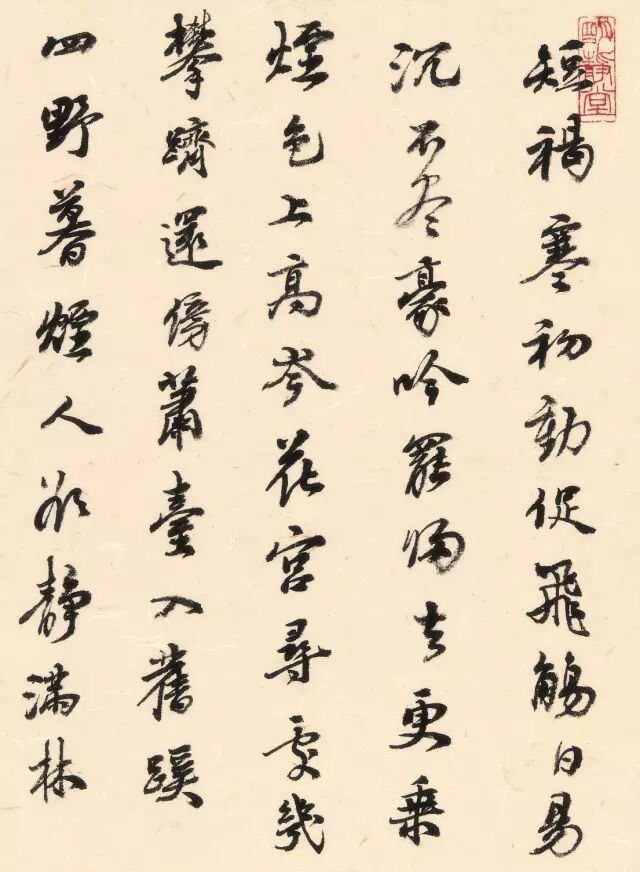 短褐寒初動促飛觴日易
沉不盡豪吟罷歸去更乘
煙色上高岑花宮尋處幾
攀躋還傍蕭臺入舊蹊
四野暮煙人欲靜滿林